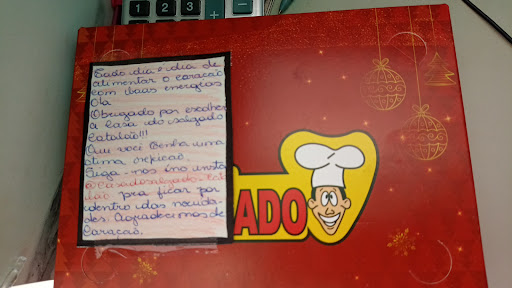 Todo dia é dia de
alimentar o coração
com boas energias
Olá
Obrigado por escolher
a Casa do salgado
Catalão!!!
Que você tenha uma
ótima refeição.
Siga-nos (no insta
@Casadosalgado.Cat
alão pra ficar por
dentro das novida-
des Agradecimos de
Coração.
ADO